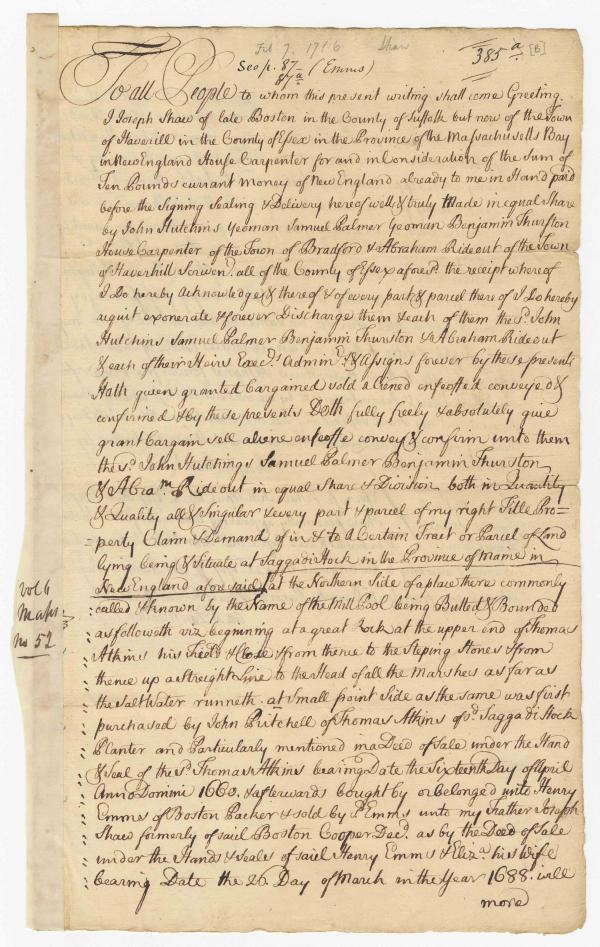 Feb 7. 1716 Shaw
385 a [B]
See p. 87 (Emms)
87a
To all People to whom this present writing shall come Greeting.
I Joseph Shaw of late Boston in the County of Suffolk but now of the Town
of Haverill in the County of Essex in the Province of the Massachusells Bay
in New England House Carpenter for and in Consideration of the Sum of
Ten Pounds currant Money of New England already to me in Hand paid
before the Signing Sealing & Delivery hereof well & truly Made in equal Share
by John Hutchins Yeoman Samuel Palmer Yeoman Benjamin Thurston
House Carpenter of the Town of Bradford & Abraham Rideout of the Town
of Haverhill Scriven.r all of the County of Essex aforesd. the receipt whereof
I Do hereby Acknowledge & thereof & of every part & parcel there of I Do hereby
acquit exonerate & forever Discharge them & each of them the sd. John
Hutchins Samuel Palmer Benjamin Thurston & Abraham Rideout
& each of their Heirs Exec.rs Admin.rs & Assigns forever by these presents
Hath given granted bargained sold aliened enfeoffed conveyed &
confirmed & by these presents Doth fully freely & absolutely give
grant bargain sell aliene enfeoffe convey & confirm unto them
the sd. John Hutchings Samuel Palmer Benjamin Thurston
& Abram Rideout in equal Share & Division both in Quantity
& Quality all & Singular & every part & parcel of my right Title Pro=
=perty Claim & Demand of in & to A Certain Tract or Parcel of Land
lying being & Situate at Saggadi Hock in the Province of Maine in
New England aforesaid at the Northern Side of a place there commonly
called & known by the Name of the Mill Pool being Butted & Bounded
as followeth viz beginning at a great Rock at the upper end of Thomas
Atkins his Field & Close & from thence to the Steping Stones & from
thence up a Streight Line to the Head of all the Marshes as far as
the Salt Water runneth at Small point Side as the same was first
purchased by John Pritchell of Thomas Atkins of sd. Saggadi Hock
Planter and Particularly mentioned in a Deed of Sale under the Hand
& Seal of the sd. Thomas Atkins bearing Date the Sixteenth Day of April
Anno Domini 1660. & afterwards bought by or belonged unto Henry
Emms of Boston Packer & sold by sd. Emms unto my Father Joseph
Shaw formerly of said Boston Cooper Decd. as by the Deed of Sale
under the Hands & seales of said Henry Emms & Eliza. his Wife
bearing Date the 26. Day of March in the Year 1688. will
more
vol 6
Maps
No 52